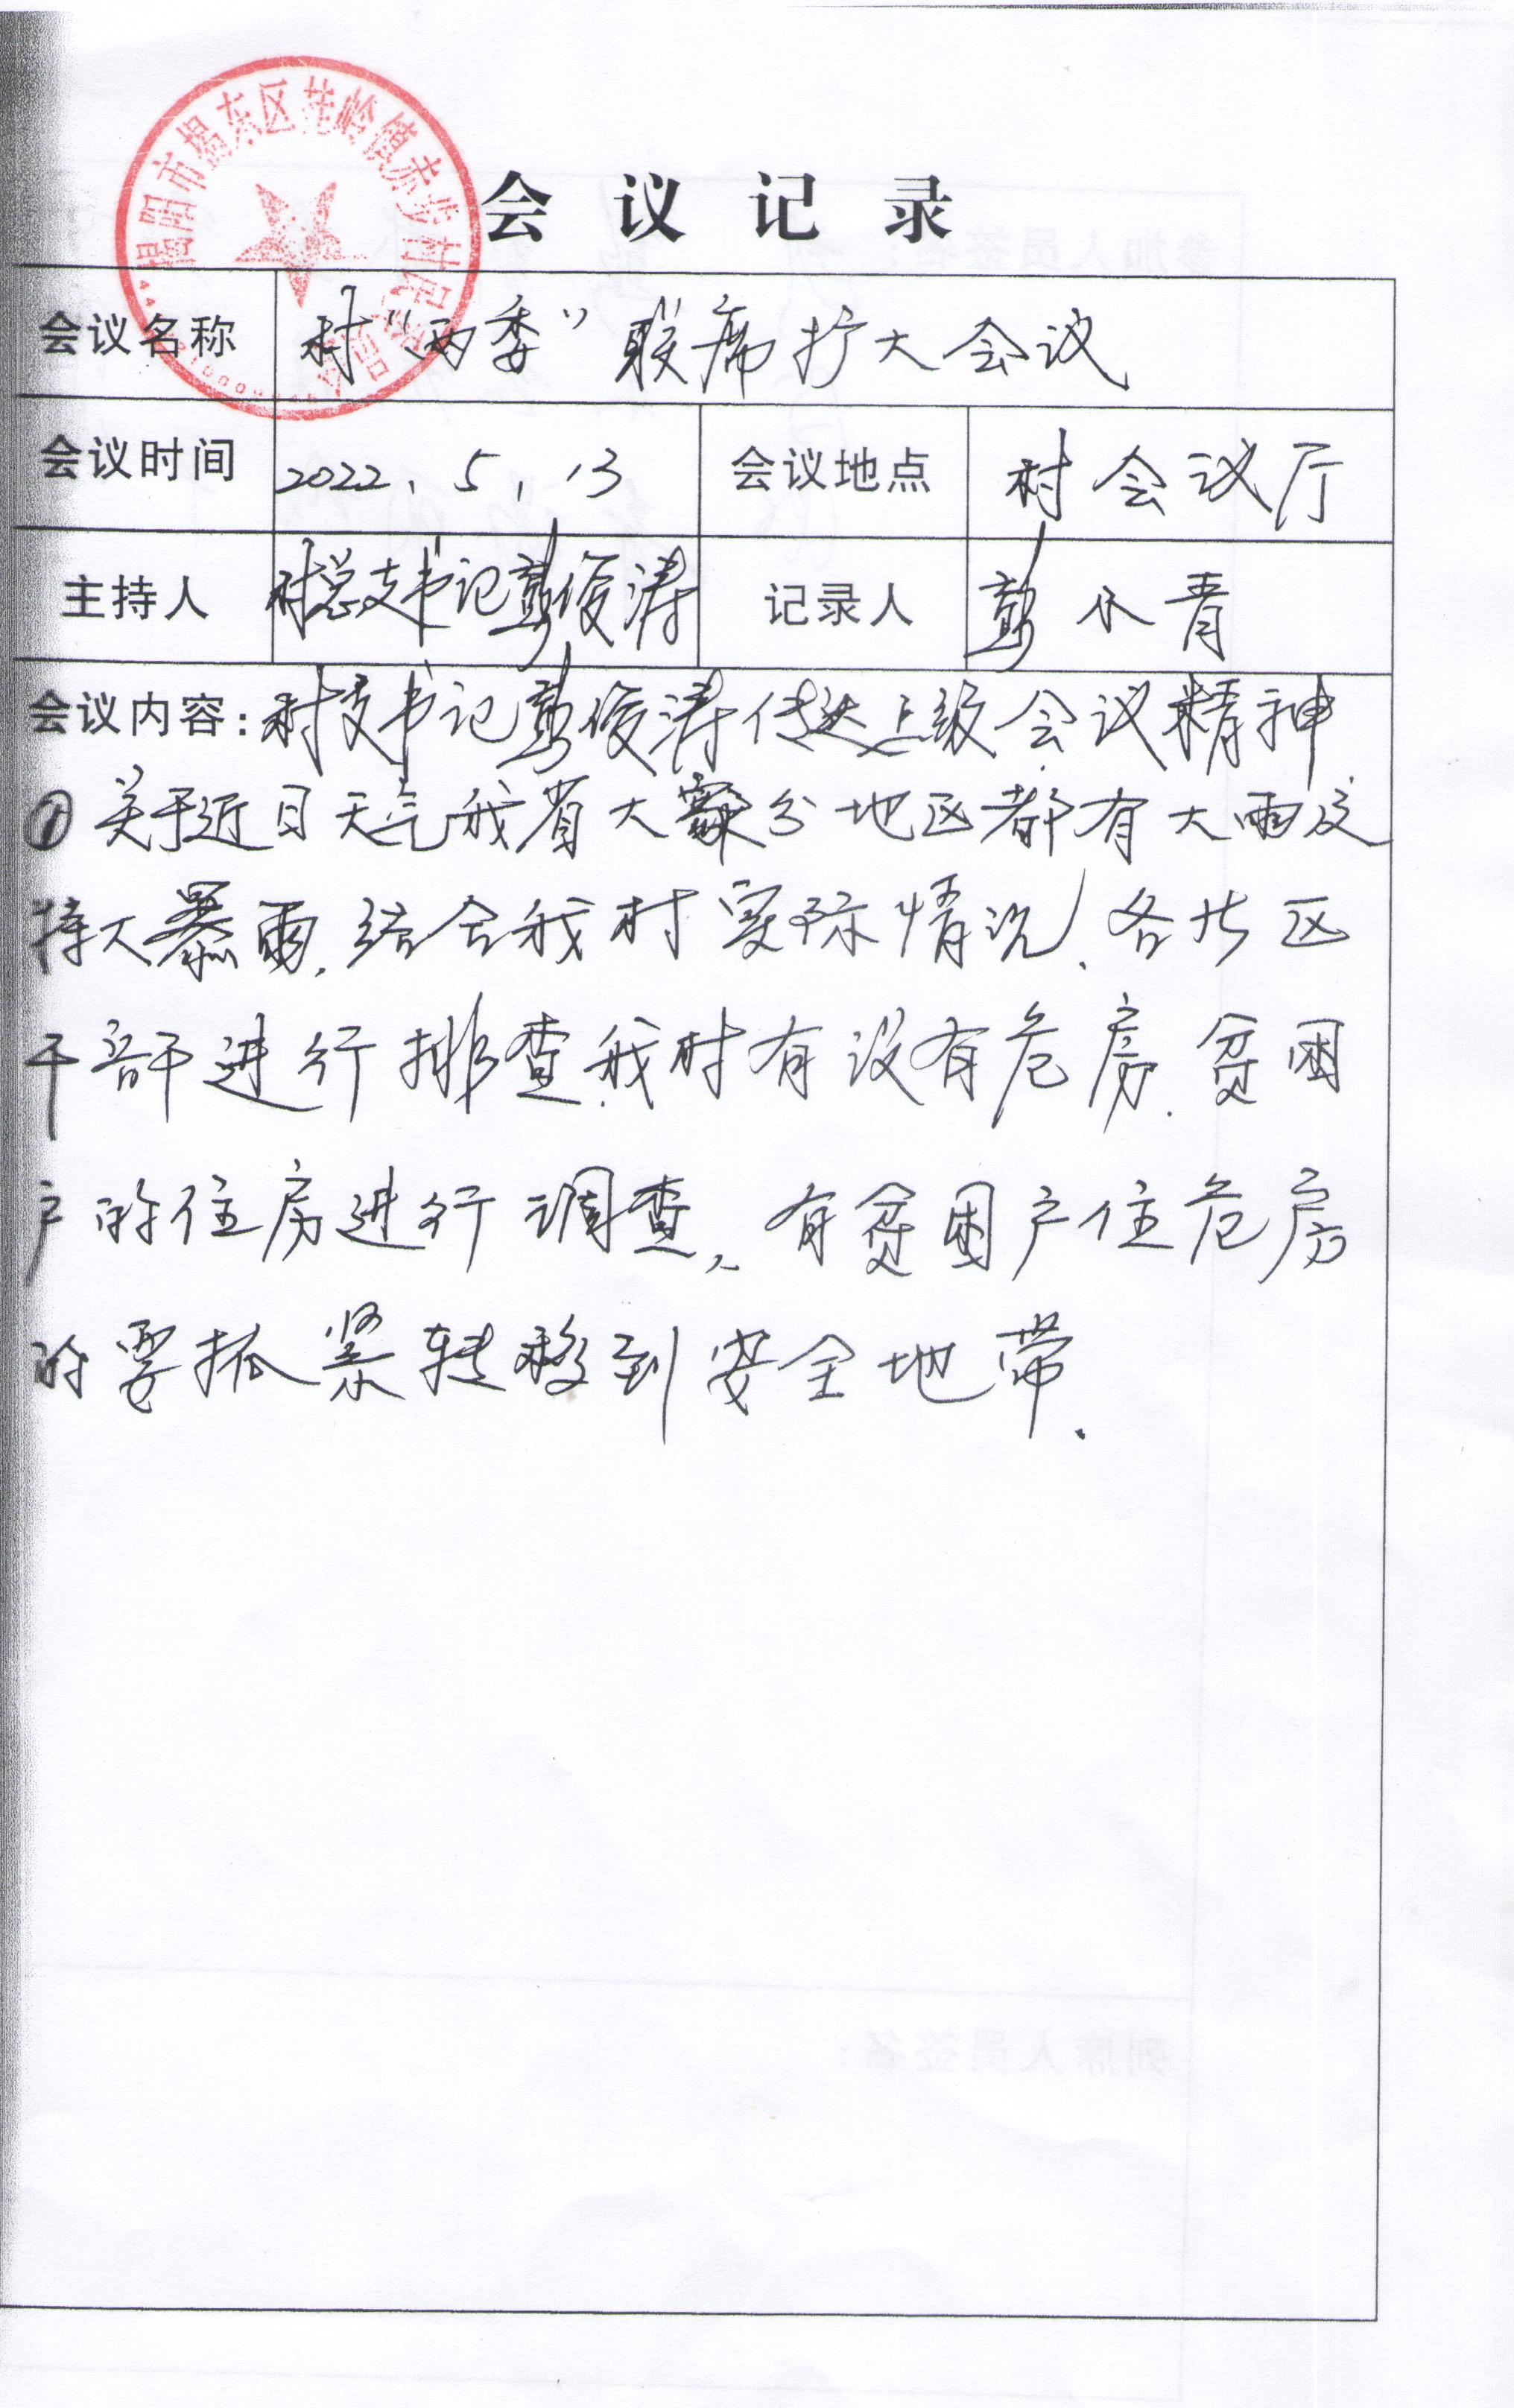 揭阳市揭东区茏岭镇赤步村民委员会
会议记录
会议名称 村“两委”联席扩大会议
会议时间 2022.5.13 会议地点 村会议厅
主持人 村总支书记彭俊涛 记录人 彭小青
会议内容:村支书记彭俊涛传达上级会议精神
① 关于近日天气我省大部分地区都有大雨及
特大暴雨.结合我村实际情况、各片区
干部进行排查我村有没有危房.贫困
户的住房进行调查,有贫困户住危房
的要抓紧转移到安全地带.
参加人员签名
列席人员签名: